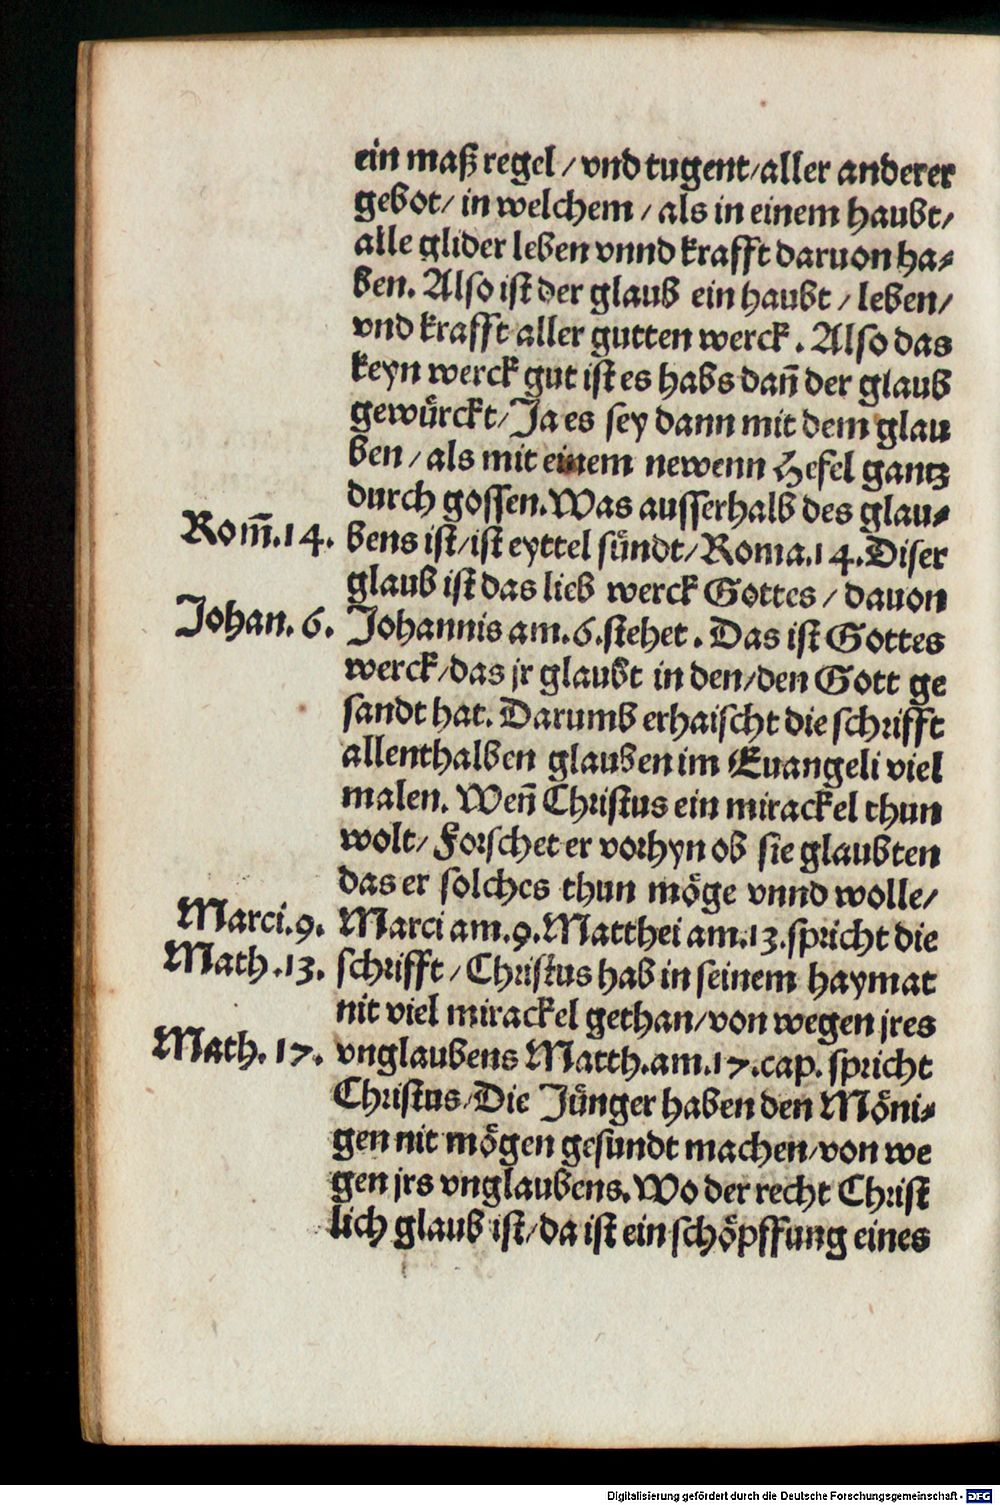 ein maß regel / vnd tugent / aller anderer
gebot / in welchem / als in einem haubt /
alle glider leben vnnd krafft daruon ha⸗
ben. Also ist der glaub ein haubt / leben /
vnd krafft aller gutten werck. Also das
keyn werck gut ist es habs dañ der glaub
gewürckt / Ja es sey dann mit dem glau
ben / als mit einem newenn Hefel gantz
durch gossen. Was ausserhalb des glau⸗
Rom̃. 14. bens ist / ist eyttel sündt / Roma. 14. Diser
glaub ist das lieb werck Gottes / dauon
Johan. 6. Johannis am. 6. stehet. Das ist Gottes
werck / das jr glaubt in den / den Gott ge
sandt hat. Darumb erhaischt die schrifft
allenthalben glauben im Euangeli viel
malen. Weñ Christus ein mirackel thun
wolt / Forschet er vorhyn ob sie glaubten
das er solches thun möge vnnd wolle /
Marci. 9. Marci am. 9. Matthei am. 13. spricht die
Math. 13. schrifft / Christus hab in seinem haymat
nit viel mirackel gethan / von wegen jres
Math. 17. vnglaubens Matth. am. 17. cap. spricht
Christus / Die Jünger haben den Möni⸗
gen nit mögen gesundt machen / von we
gen jrs vnglaubens. Wo der recht Christ
lich glaub ist / da ist ein schöpffung eines
Digitalisierung gefördert durch die Deutsche Forschungsgemeinschaft - DFG